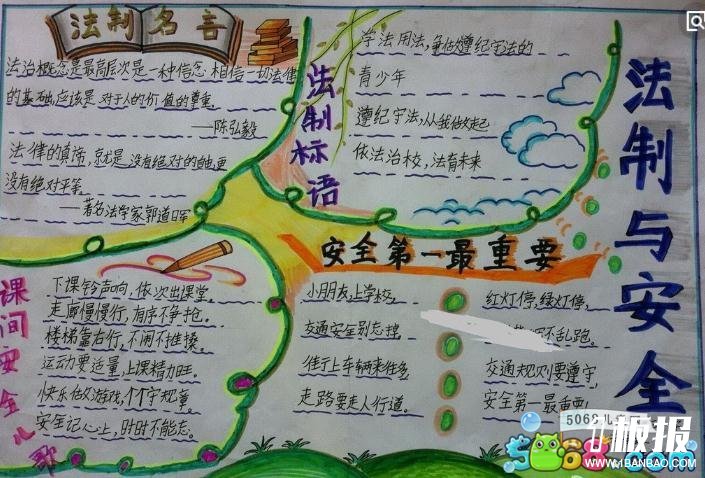 法制名言
法治概念是最高层次是一种信念 相信一切法律
的基础,应该是 对于人的价值的尊重.
——陈弘毅
法律的真谛,就是没有绝对的自由,更
没有绝对平等.
——著名法学家郭道晖
法制标语
学法用法,争做遵纪守法的
青少年
遵纪守法,从我做起
依法治校,法育未来
法制与安全
课间安全儿歌
下课铃声响,依次出课堂.
走廊慢慢行,有序不争抢.
楼梯靠右行,不闹不推搡.
运动要适量,上课精力旺.
快乐做游戏,个个守规章.
安全记心上,时时不能忘.
安全第一最重要
小朋友上学校,
交通安全别忘掉.
往上车辆来往多
走路要走人行道.
红灯停,绿灯停,
不乱跑.
交通规则要遵守,
安全第一最重要!
5068儿
板报
5068.com
WWW.1BANBAO.COM